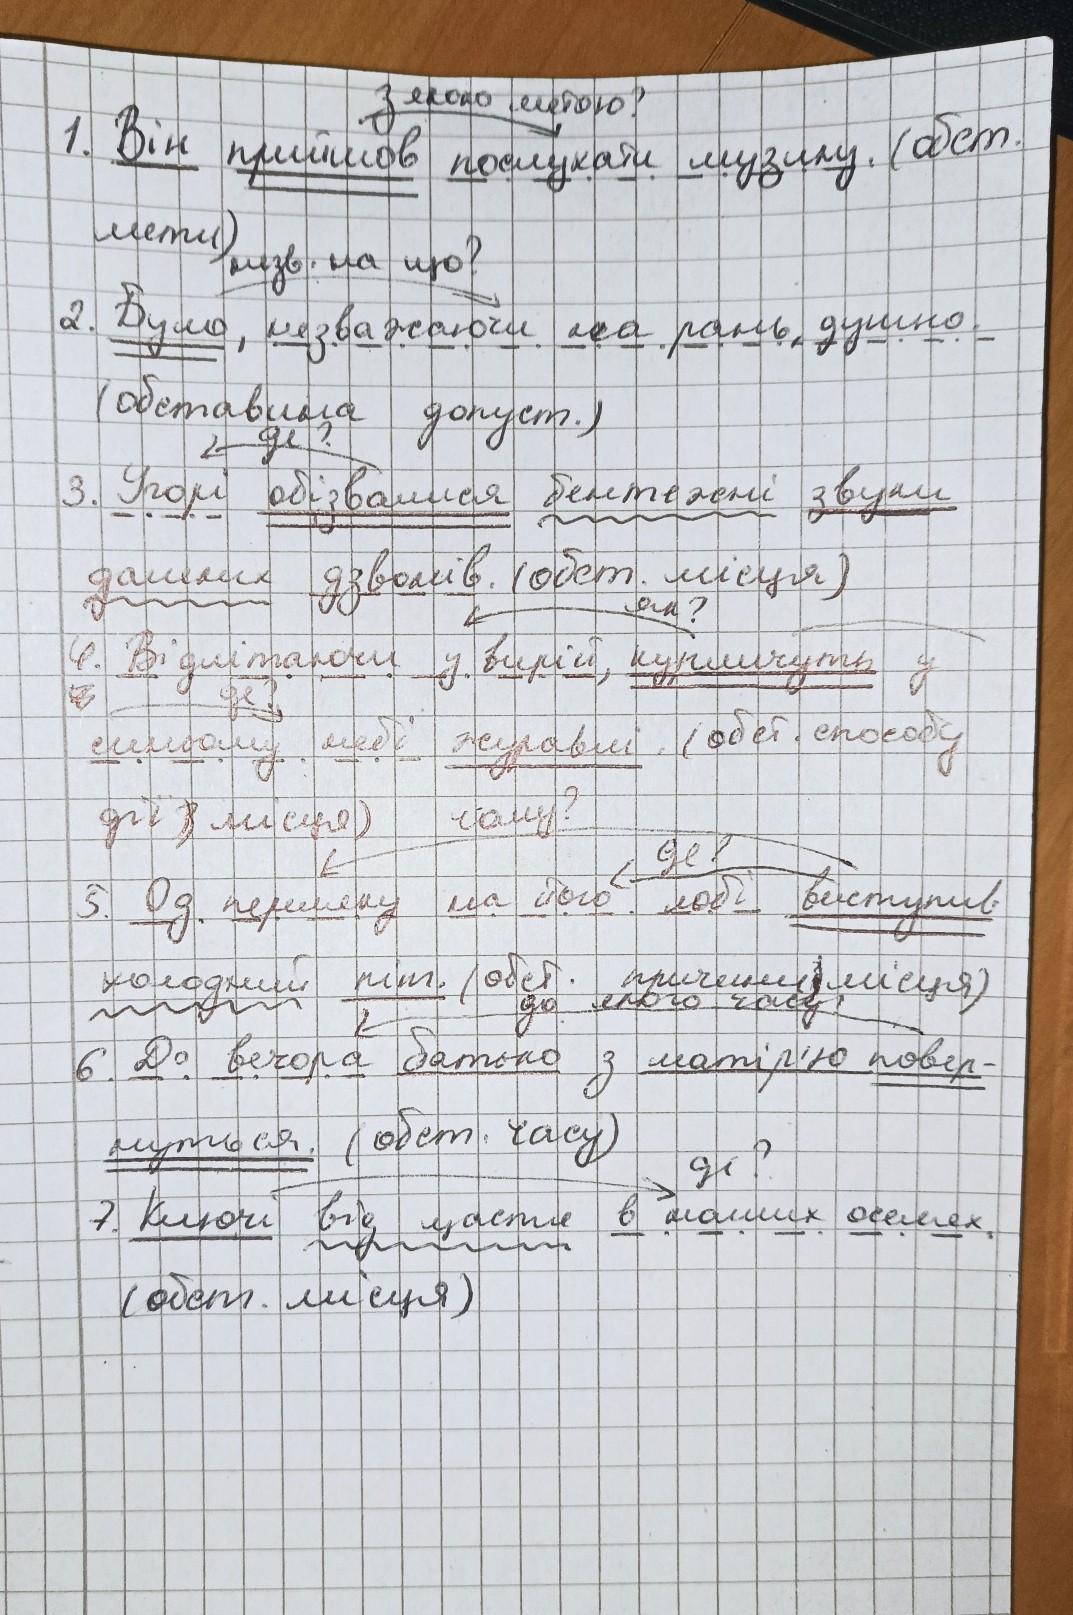 з якою метою?
1. Він прийшов послухати музику. (обст.
мети)
незв. на що?
2. Було, незважаючи на рань, душно.
(обставина допуст.)
де?
3. Угорі обізвалися бентежні звуки
далеких дзвонів. (обст. місця)
як?
4. Відлітаючи у вирій, курличуть у
де?
синьому небі журавлі. (обст. способу
дії, місця)
чому?
де?
5. Од переляку на його лобі виступив
холодний піт. (обст. причини, місця)
до якого часу?
6. До вечора батько з матір'ю повер-
нуться. (обст. часу)
де?
7. Ключі від щастя в наших оселях.
(обст. місця)